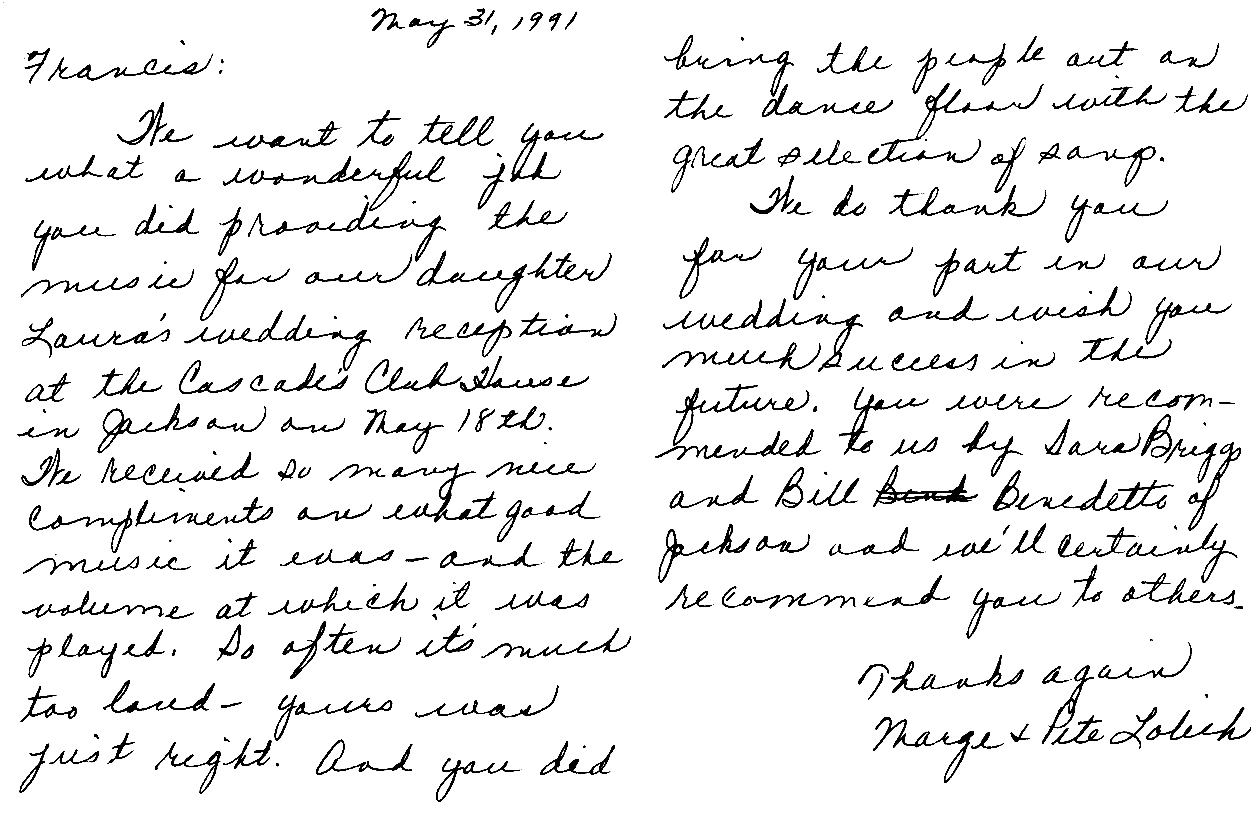 May 31, 1991
Francis:
We want to tell you
what a wonderful job
you did providing the
music for our daughter
Laura's wedding reception
at the Cascades Club House
in Jackson on May 18th.
We received so many nice
compliments on what good
music it was – and the
volume at which it was
played. So often it's much
too loud – yours was
just right. And you did
bring the people out on
the dance floor with the
great selection of songs.
We do thank you
for your part in our
wedding and wish you
much success in the
future. You were recom-
mended to us by Sara Briggs
and Bill Benedetto of
Jackson and we'll certainly
recommend you to others.
Thanks again
Marge & Pete